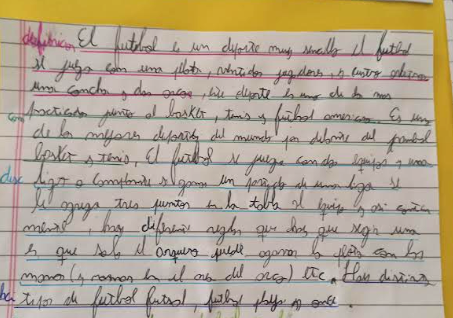 definicion El futbol es un deporte muy sencillo el futbol
se juega con una pelota, veintidos jugadores, y cuatro
una cancha y dos arcos, este deporte es uno de los mas
com practicados junto al basket, tenis y futbol americano. Es uno
de los mejores deportes del mundo por delante del
basket y tenis, El futbol se juega con dos equipos y una
desc liga o si ganan un partido de una liga se
le agrega tres puntos en la tabla al equipo y asi
mente, hay diferente reglas que hay que seguir una
es que solo el arquero puede agarrar la pelota con las
manos (y en el del arco) etc. Hay distintos
tipos de futbol futsal, futbol playa y once.